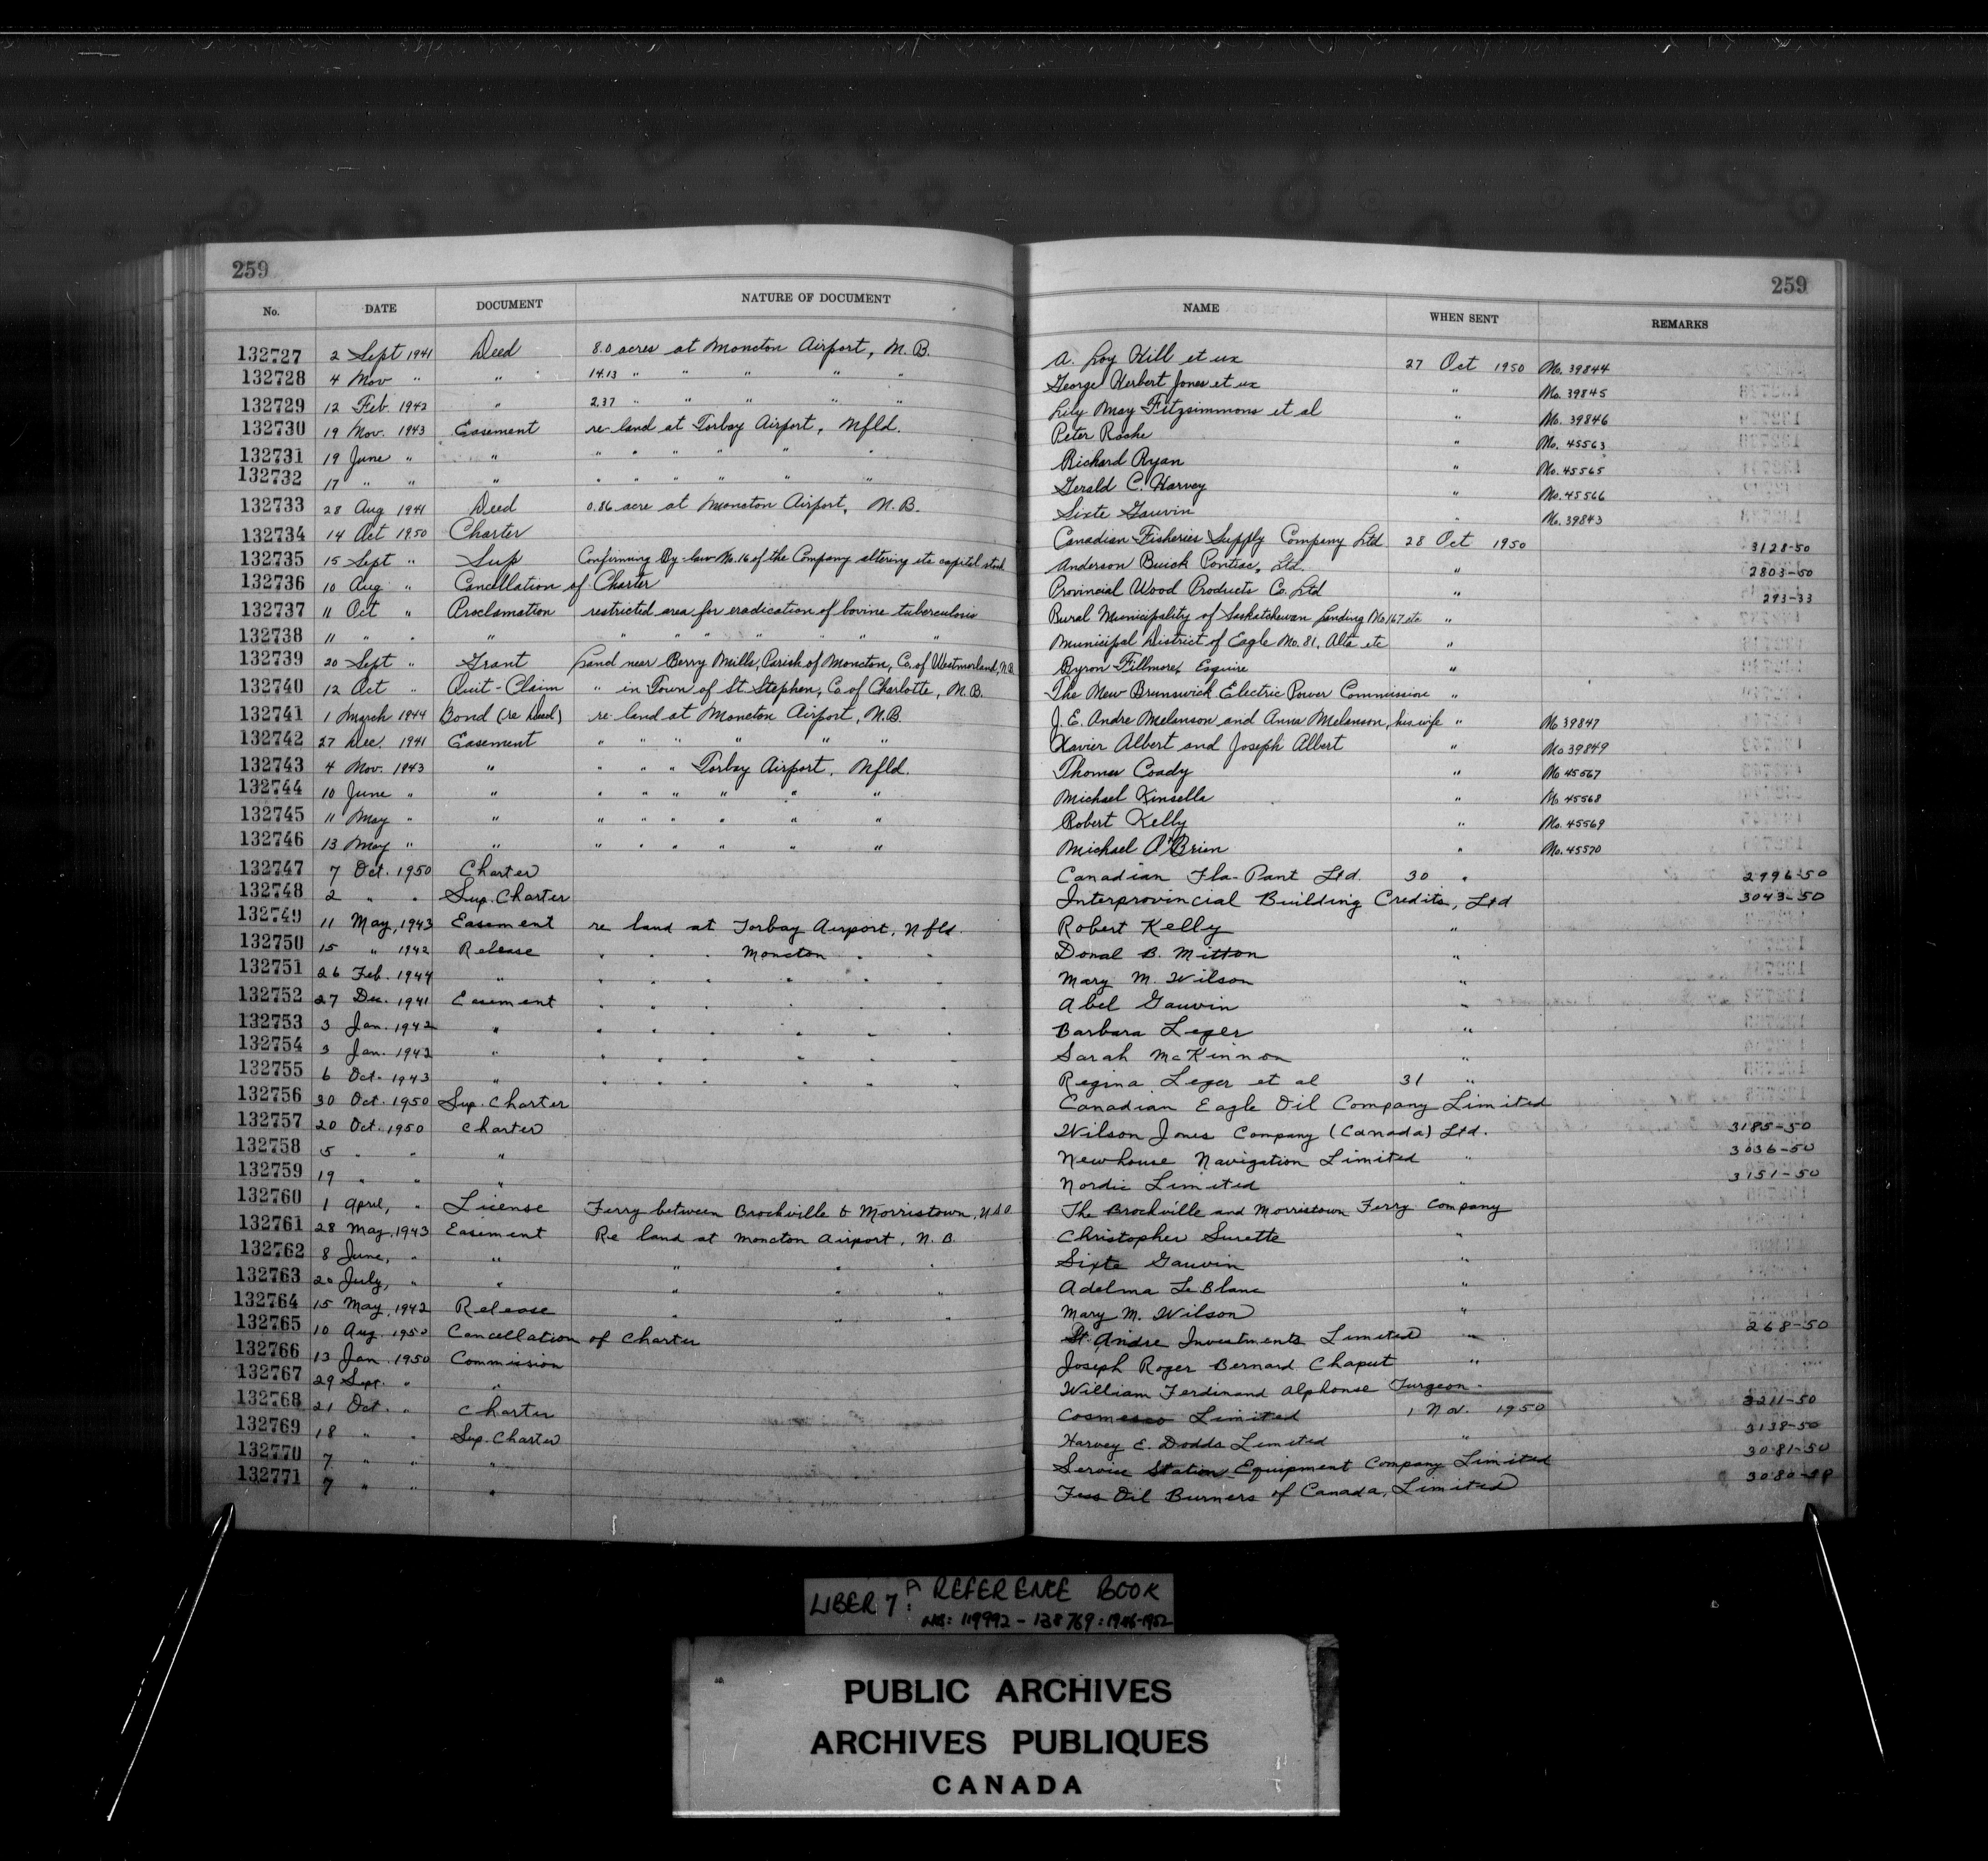 259 259
No. DATE DOCUMENT NATURE OF DOCUMENT NAME WHEN SENT REMARKS
132727 2 Sept 1941 Deed 8.0 acres at Moncton Airport, N.B. A. Loy Hill et ux 27 Oct 1950 No. 39844
132728 4 Nov " " 14.13 " " " " " George Herbert Jones et ux " No. 39845
132729 12 Feb. 1942 " 2.37 " " " " " Lily May Fitzsimmons et al " No. 39846
132730 19 Nov. 1943 Easement re land at Torbay Airport, Nfld. Peter Roche " No. 45563
132731 19 June " " " " " " " " Richard Ryan " No. 45565
132732 17 " " " " " " " " " Gerald C. Harvey " No. 45566
132733 28 Aug 1941 Deed 0.86 acre at Moncton Airport, N.B. Sixte Gauvin " No. 39843
132734 14 Oct 1950 Charter Canadian Fisheries Supply Company Ltd 28 Oct 1950 3128-50
132735 15 Sept " Sup Confirming By-law No. 16 of the Company altering its capital stock Anderson Buick Pontiac, Ltd. " 2803-50
132736 10 Aug " Cancellation of Charter Provincial Wood Products Co. Ltd " 293-33
132737 11 Oct " Proclamation restricted area for eradication of bovine tuberculosis Rural Municipality of Saskatchewan Landing No. 167 etc "
132738 11 " " " " " " " " " " Municipal District of Eagle No. 81, Alta etc "
132739 20 Sept " Grant Land near Berry Mills, Parish of Moncton, Co. of Westmorland, N.B. Byron Fillmore, Esquire "
132740 12 Oct " Quit-Claim " in Town of St Stephen, Co of Charlotte, N.B. The New Brunswick Electric Power Commission "
132741 1 March 1944 Bond (re deed) re land at Moncton Airport, N.B. J. E. Andre Melanson and Anna Melanson, his wife " No 39847
132742 27 Dec. 1941 Easement " " " " " " Xavier Albert and Joseph Albert " No 39849
132743 4 Nov. 1943 " " " " Torbay Airport, Nfld. Thomas Coady " No 45567
132744 10 June " " " " " " " " Michael Kinsella " No 45568
132745 11 May " " " " " " " " Robert Kelly " No. 45569
132746 13 May " " " " " " " " Michael O'Brien " No. 45570
132747 7 Oct. 1950 Charter Canadian Fla-Pant Ltd. 30 " 2996-50
132748 2 " " Sup. Charter Interprovincial Building Credits, Ltd 3043-50
132749 11 May, 1943 Easement re land at Torbay Airport, Nfld. Robert Kelly "
132750 15 " 1942 Release " " " Moncton " " Donal B. Mitton "
132751 26 Feb. 1944 " " " " " " " Mary M. Wilson "
132752 27 Dec. 1941 Easement " " " " " " Abel Gauvin "
132753 3 Jan. 1942 " " " " " " " Barbara Leger "
132754 3 Jan. 1942 " " " " " " " Sarah McKinnon "
132755 6 Oct. 1943 " " " " " " " Regina Leger et al 31 "
132756 30 Oct. 1950 Sup. Charter Canadian Eagle Oil Company Limited
132757 20 Oct. 1950 Charter Wilson Jones Company (Canada) Ltd. 3185-50
132758 5 " " " Newhouse Navigation Limited " 3036-50
132759 19 " " " Nordic Limited " 3151-50
132760 1 April, " License Ferry between Brockville & Morristown, U.S.A. The Brockville and Morristown Ferry Company
132761 28 May, 1943 Easement Re land at Moncton Airport, N.B. Christopher Surette "
132762 8 June, " " " " " Sixte Gauvin "
132763 20 July, " " " " " Adelma LeBlanc "
132764 15 May, 1942 Release " " " Mary M. Wilson "
132765 10 Aug. 1950 Cancellation of Charter St. Andre Investments Limited " 268-50
132766 13 Jan 1950 Commission Joseph Roger Bernard Chaput "
132767 29 Sept. " " William Ferdinand Alphonse Turgeon "
132768 21 Oct. " Charter Cosmesco Limited 1 Nov. 1950 3211-50
132769 18 " " Sup. Charter Harvey E. Dodds Limited " 3138-50
132770 7 " " " Service Station Equipment Company Limited 3081-50
132771 7 " " " Fess Oil Burners of Canada, Limited
LIBER 7A: REFERENCE BOOK
NOS: 119992 - 138769: 1946-1952
PUBLIC ARCHIVES
ARCHIVES PUBLIQUES
CANADA